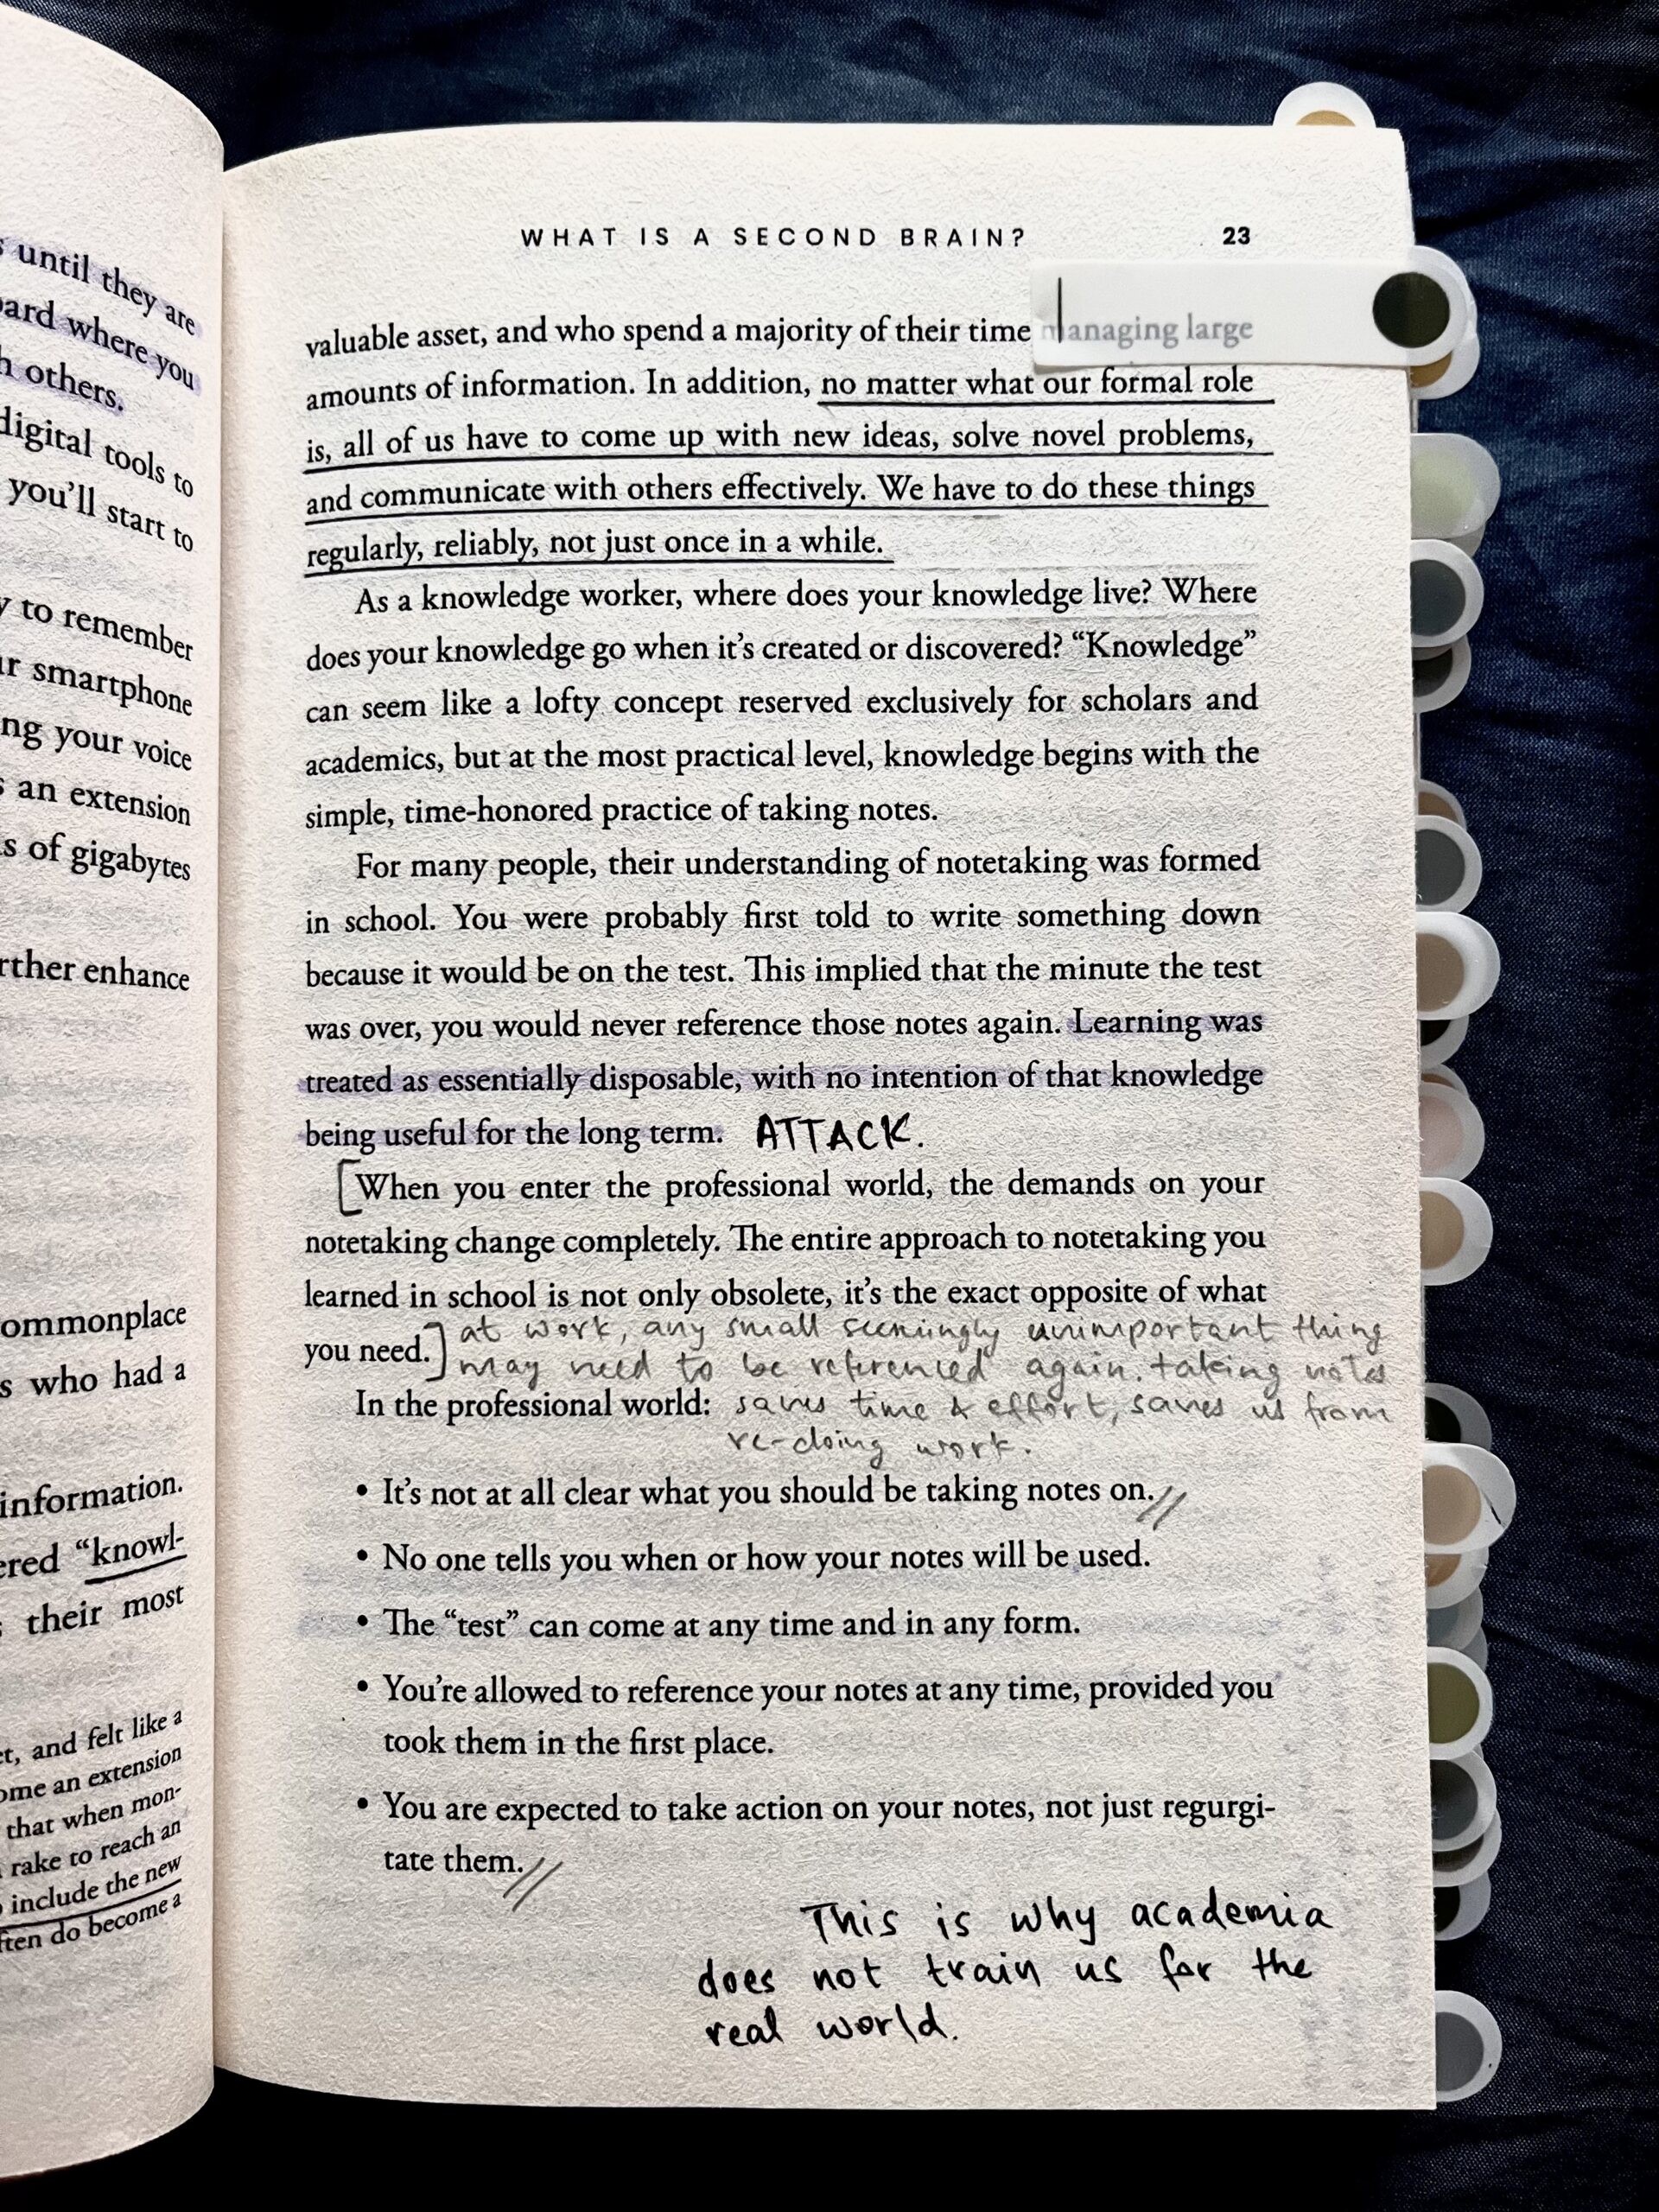 s until they are
ard where you
h others.
digital tools to
you'll start to
y to remember
ur smartphone
ng your voice
s an extension
s of gigabytes
rther enhance
ommonplace
s who had a
information.
ered “knowl-
their most
t, and felt like a
ome an extension
that when mon-
rake to reach an
include the new
ften do become a
WHAT IS A SECOND BRAIN? 23
valuable asset, and who spend a majority of their time managing large
amounts of information. In addition, no matter what our formal role
is, all of us have to come up with new ideas, solve novel problems,
and communicate with others effectively. We have to do these things
regularly, reliably, not just once in a while.
As a knowledge worker, where does your knowledge live? Where
does your knowledge go when it’s created or discovered? “Knowledge”
can seem like a lofty concept reserved exclusively for scholars and
academics, but at the most practical level, knowledge begins with the
simple, time-honored practice of taking notes.
For many people, their understanding of notetaking was formed
in school. You were probably first told to write something down
because it would be on the test. This implied that the minute the test
was over, you would never reference those notes again. Learning was
treated as essentially disposable, with no intention of that knowledge
being useful for the long term. ATTACK.
[When you enter the professional world, the demands on your
notetaking change completely. The entire approach to notetaking you
learned in school is not only obsolete, it’s the exact opposite of what
you need.]
at work, any small seemingly unimportant thing
may need to be referenced again. taking notes
In the professional world: saves time & effort, saves us from
re-doing work.
• It’s not at all clear what you should be taking notes on.//
• No one tells you when or how your notes will be used.
• The “test” can come at any time and in any form.
• You’re allowed to reference your notes at any time, provided you
took them in the first place.
• You are expected to take action on your notes, not just regurgi-
tate them.//
This is why academia
does not train us for the
real world.